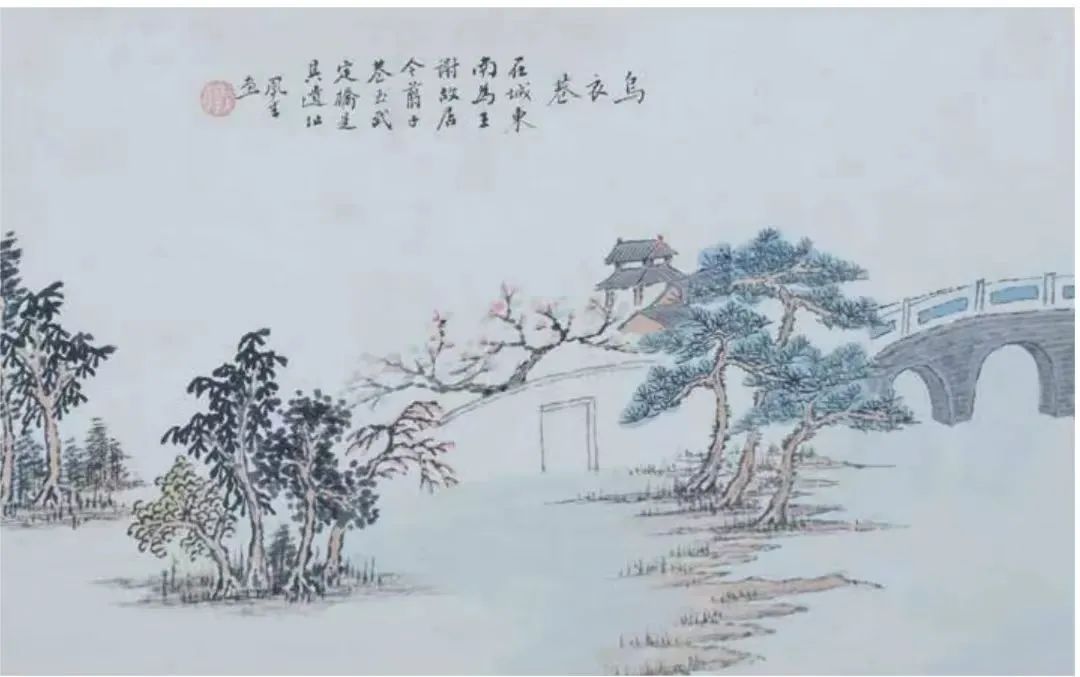 烏
衣
巷
在城東
南為王
謝故居
今剪子
巷至武
定橋是
其遺址
風生
畫